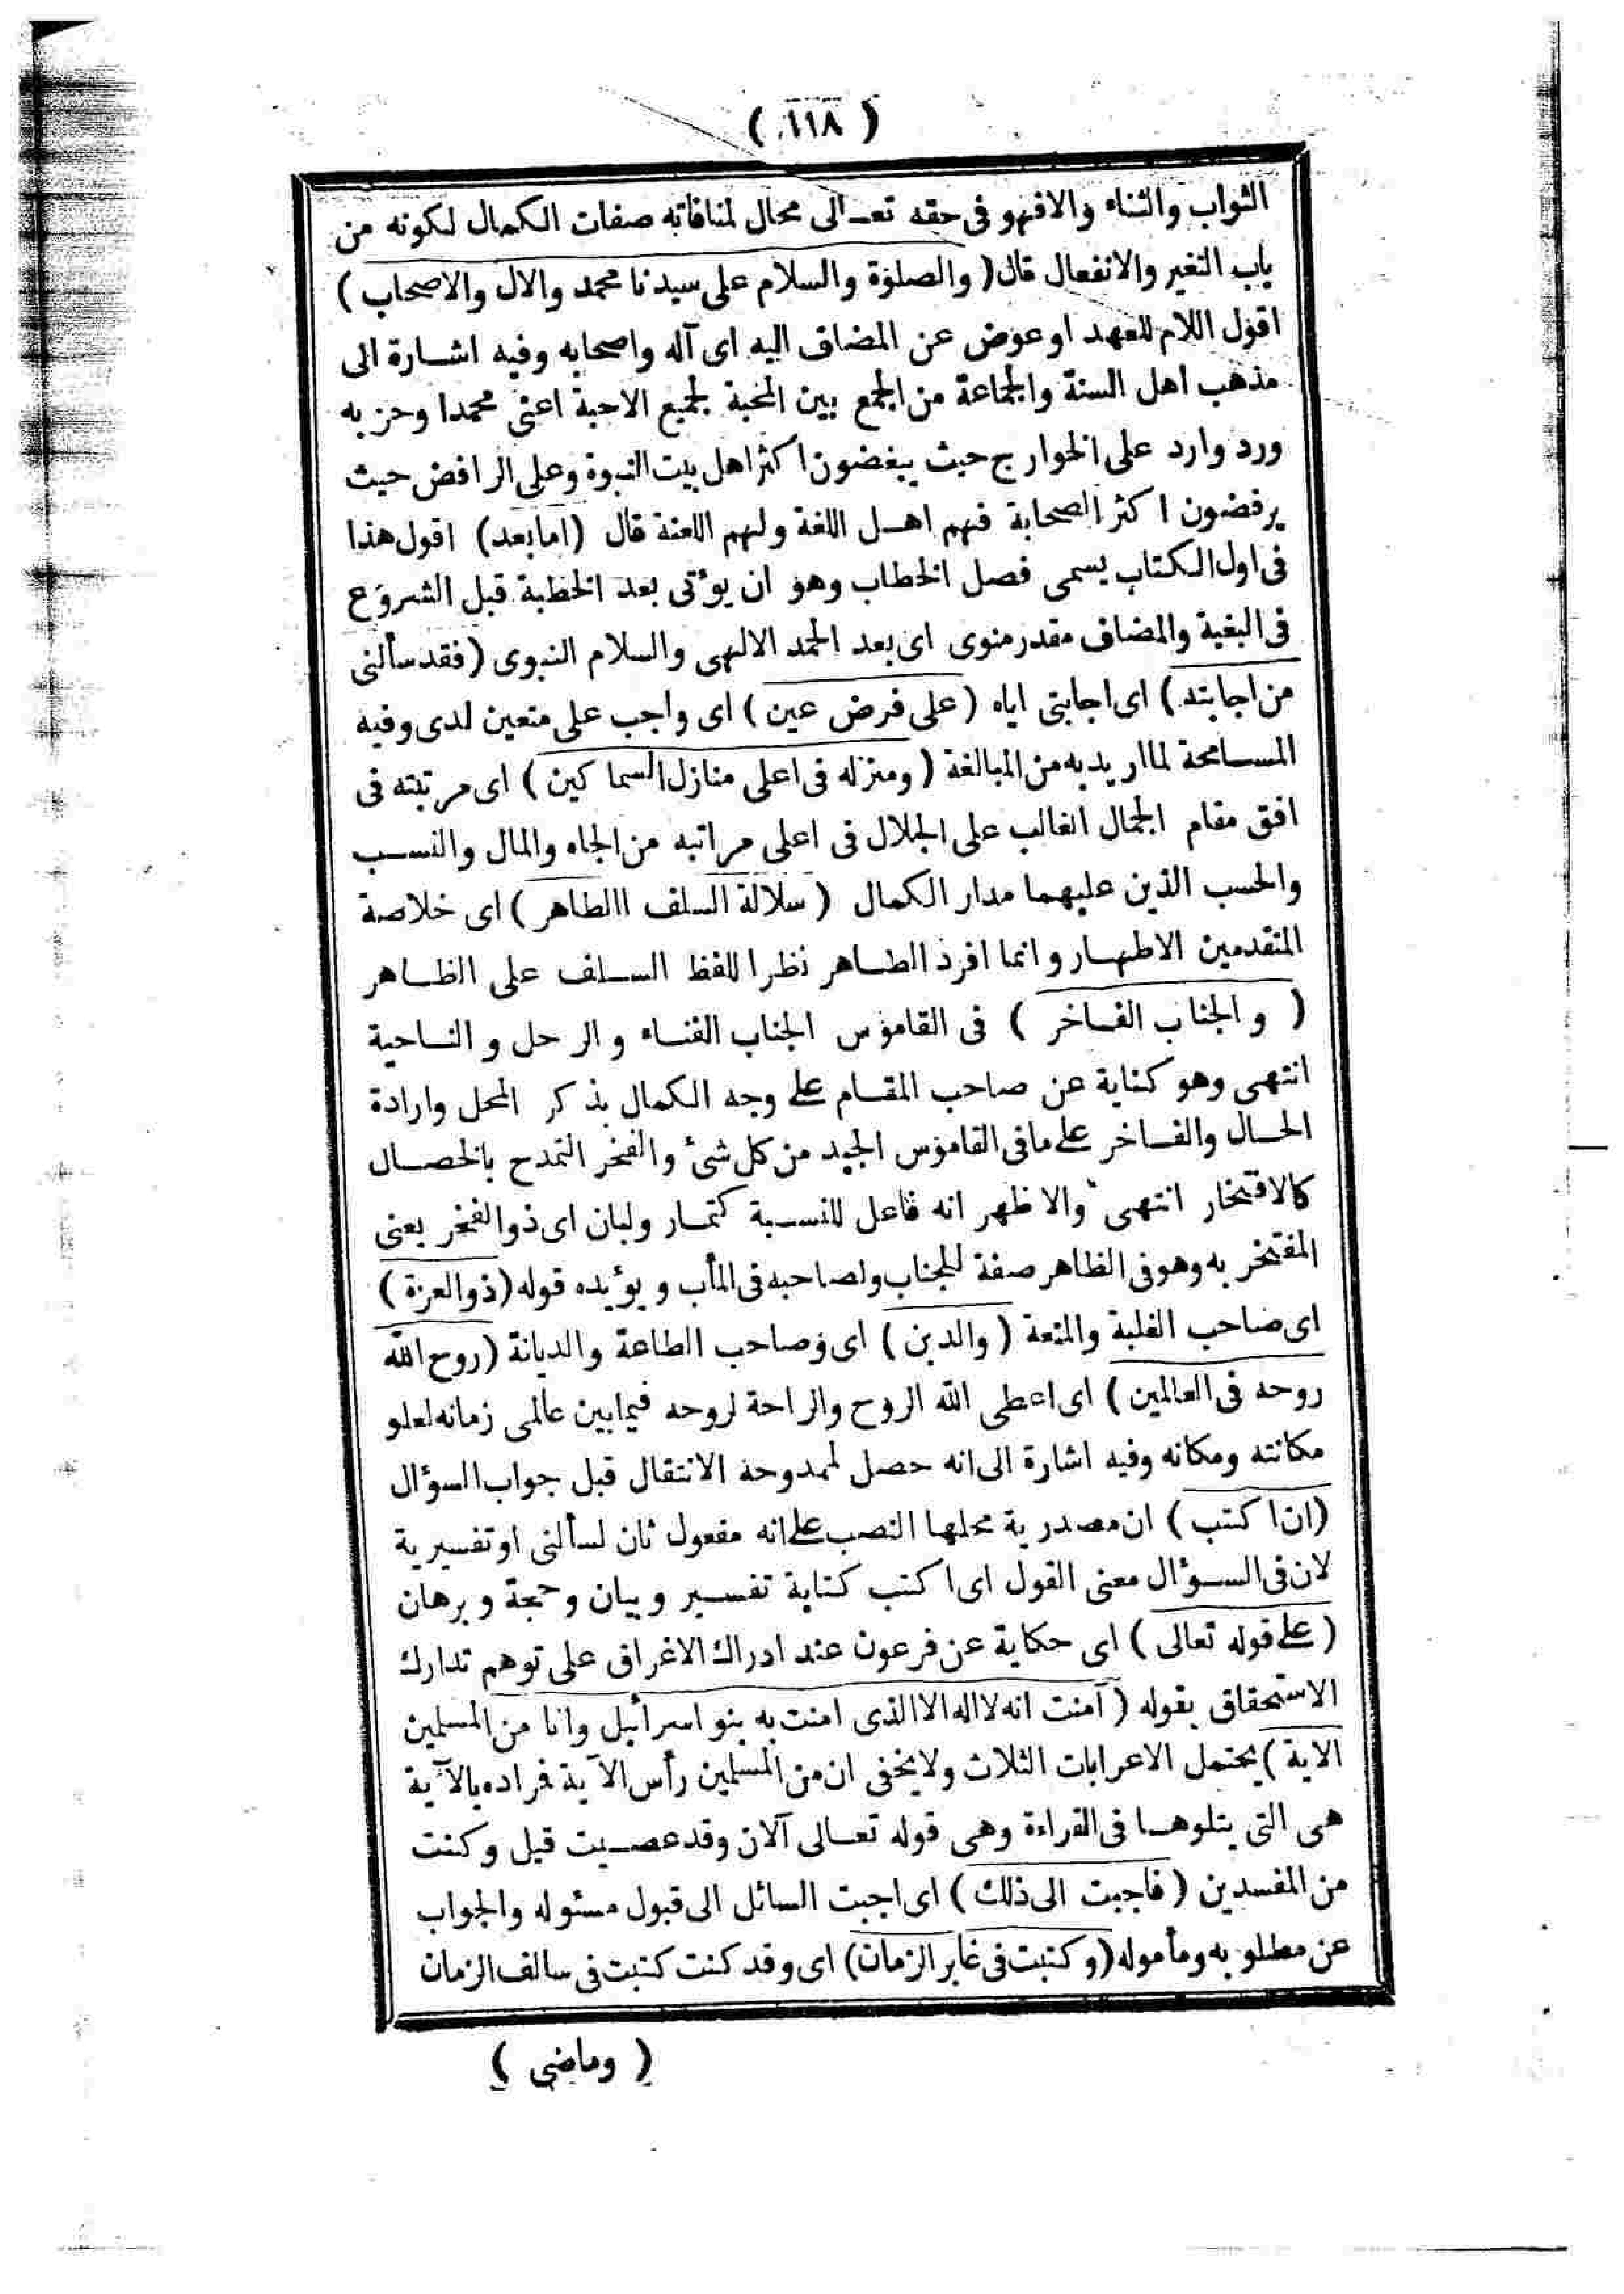 ( ١١٨ )
الثواب والثناء والافهو فى حقه تعـالى محال لمنافاته صفات الكمال لكونه من
باب التغير والانفعال قال ( والصلوة والسلام على سيدنا محمد والال والاصحاب )
اقول اللام للعهد او عوض عن المضاف اليه اى آله واصحابه وفيه اشـارة الى
مذهب اهل السنة والجماعة من الجمع بين المحبة لجميع الاحبة اعنى محمدا وحزبه
ورد وارد على الخوارج حيث يبغضون اكثر اهل بيت النبوة وعلى الرافض حيث
يرفضون اكثر الصحابة فهم اهـل اللغة ولهم اللعنة قال (امابعد) اقول هذا
فى اول الكتاب يسمى فصل الخطاب وهو ان يؤتى بعد الخطبة قبل الشروع
فى البغية والمضاف مقدر منوى اى بعد الحمد الالهى والسلام النبوى (فقد سألنى
من اجابته) اى اجابتى اياه (على فرض عين) اى واجب على متعين لدى وفيه
المسـامحة لما اريد به من المبالغة (ومنزله فى اعلى منازل السماكين) اى مرتبته فى
افق مقام الجمال الغالب على الجلال فى اعلى مراتبه من الجاه والمال والنسـب
والحسب الذين عليهما مدار الكمال (سلالة السلف االطاهر) اى خلاصة
المتقدمين الاطهـار وانما افرد الطـاهر نظرا للفظ السـلف على الظـاهر
( والجناب الفـاخر ) فى القاموس الجناب الفنـاء والرحل والنـاحية
انتهى وهو كناية عن صاحب المقـام على وجه الكمال بذكر المحل وارادة
الحـال والفـاخر على مافى القاموس الجيد من كل شئ والفخر التمدح بالخصـال
كالافتخار انتهى والاظهر انه فاعل للنسـبة كتمـار ولبان اى ذوالفخر يعنى
المفتخر به وهوفى الظاهر صفة للجناب ولصاحبه فى المأب ويؤيده قوله (ذوالعزة)
اى صاحب الغلبة والمنعة (والدين) اى وصاحب الطاعة والديانة (روح الله
روحه فى العالمين) اى اعطى الله الروح والراحة لروحه فيمابين عالمى زمانه لعلو
مكانته ومكانه وفيه اشارة الى انه حصل لممدوحه الانتقال قبل جواب السؤال
(ان اكتب) ان مصدرية محلها النصب على انه مفعول ثان لسألنى اوتفسيرية
لان فى السـؤال معنى القول اى اكتب كتابة تفسـير وبيان وحجة وبرهان
(على قوله تعالى) اى حكاية عن فرعون عند ادراك الاغراق على توهم تدارك
الاستحقاق بقوله (آمنت انه لااله الاالذى امنت به بنو اسرائيل وانا من المسلمين
الاية) يحتمل الاعرابات الثلاث ولايخفى ان من المسلمين رأس الآية فمراده بالآية
هى التى يتلوهـا فى القراءة وهى قوله تعـالى آلان وقد عصـيت قبل وكنت
من المفسدين (فاجبت الى ذلك) اى اجبت السائل الى قبول مسئوله والجواب
عن مطلوبه ومأموله (وكتبت فى غابر الزمان) اى وقد كنت كتبت فى سالف الزمان
( وماضى )